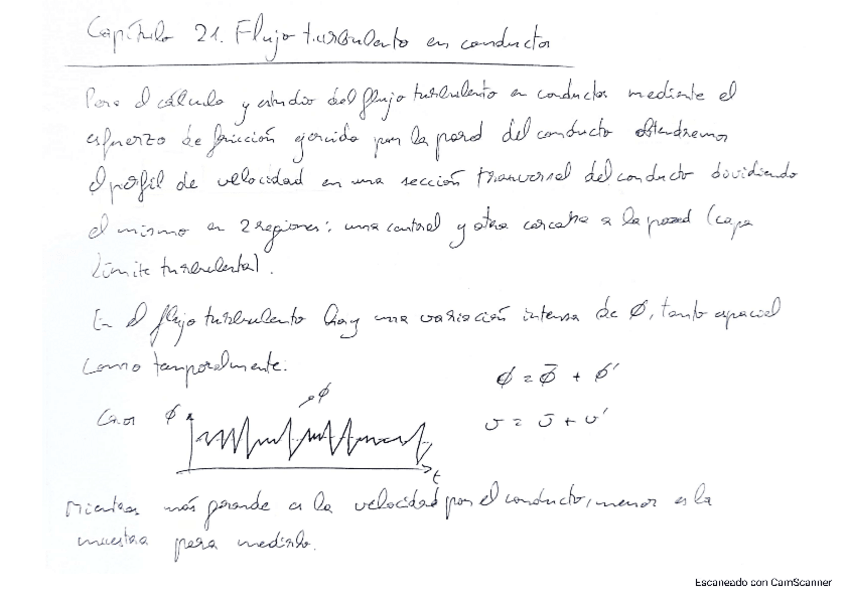 Capítulo 21. Flujo turbulento en conductos
Para el cálculo y estudio del flujo turbulento en conductos mediante el
esfuerzo de fricción ejercido por la pared del conducto obtendremos
el perfil de velocidad en una sección transversal del conducto dividiendo
el mismo en 2 regiones: una central y otra cercana a la pared (capa
límite turbulenta).
En el flujo turbulento hay una variación intensa de ϕ, tanto espacial
como temporalmente:
ϕ = ϕ̄ + ϕ'
ϕ
ϕ
v = v̄ + v'
t
Mientras más grande es la velocidad por el conducto, menor es la
muestra para medirlo.
Escaneado con CamScanner